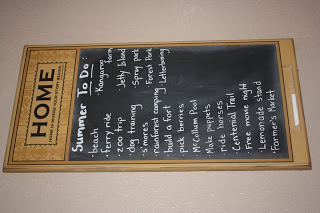 HOME
HOME IS WHERE YOUR STORY BEGINS
Summer To Do:
• beach
• ferry ride
• zoo trip
• dog training
• s'mores
• rainforest camping
• build a fort
• pick berries
• McCollum Pool
• Make puppets
• ride horses
• Centennial Trail
• Free movie night
• Lemonade stand
• Farmer's Market
• Kangaroo farm
• Jetty Island
• Spray park
• Forest Park
• Letterboxing